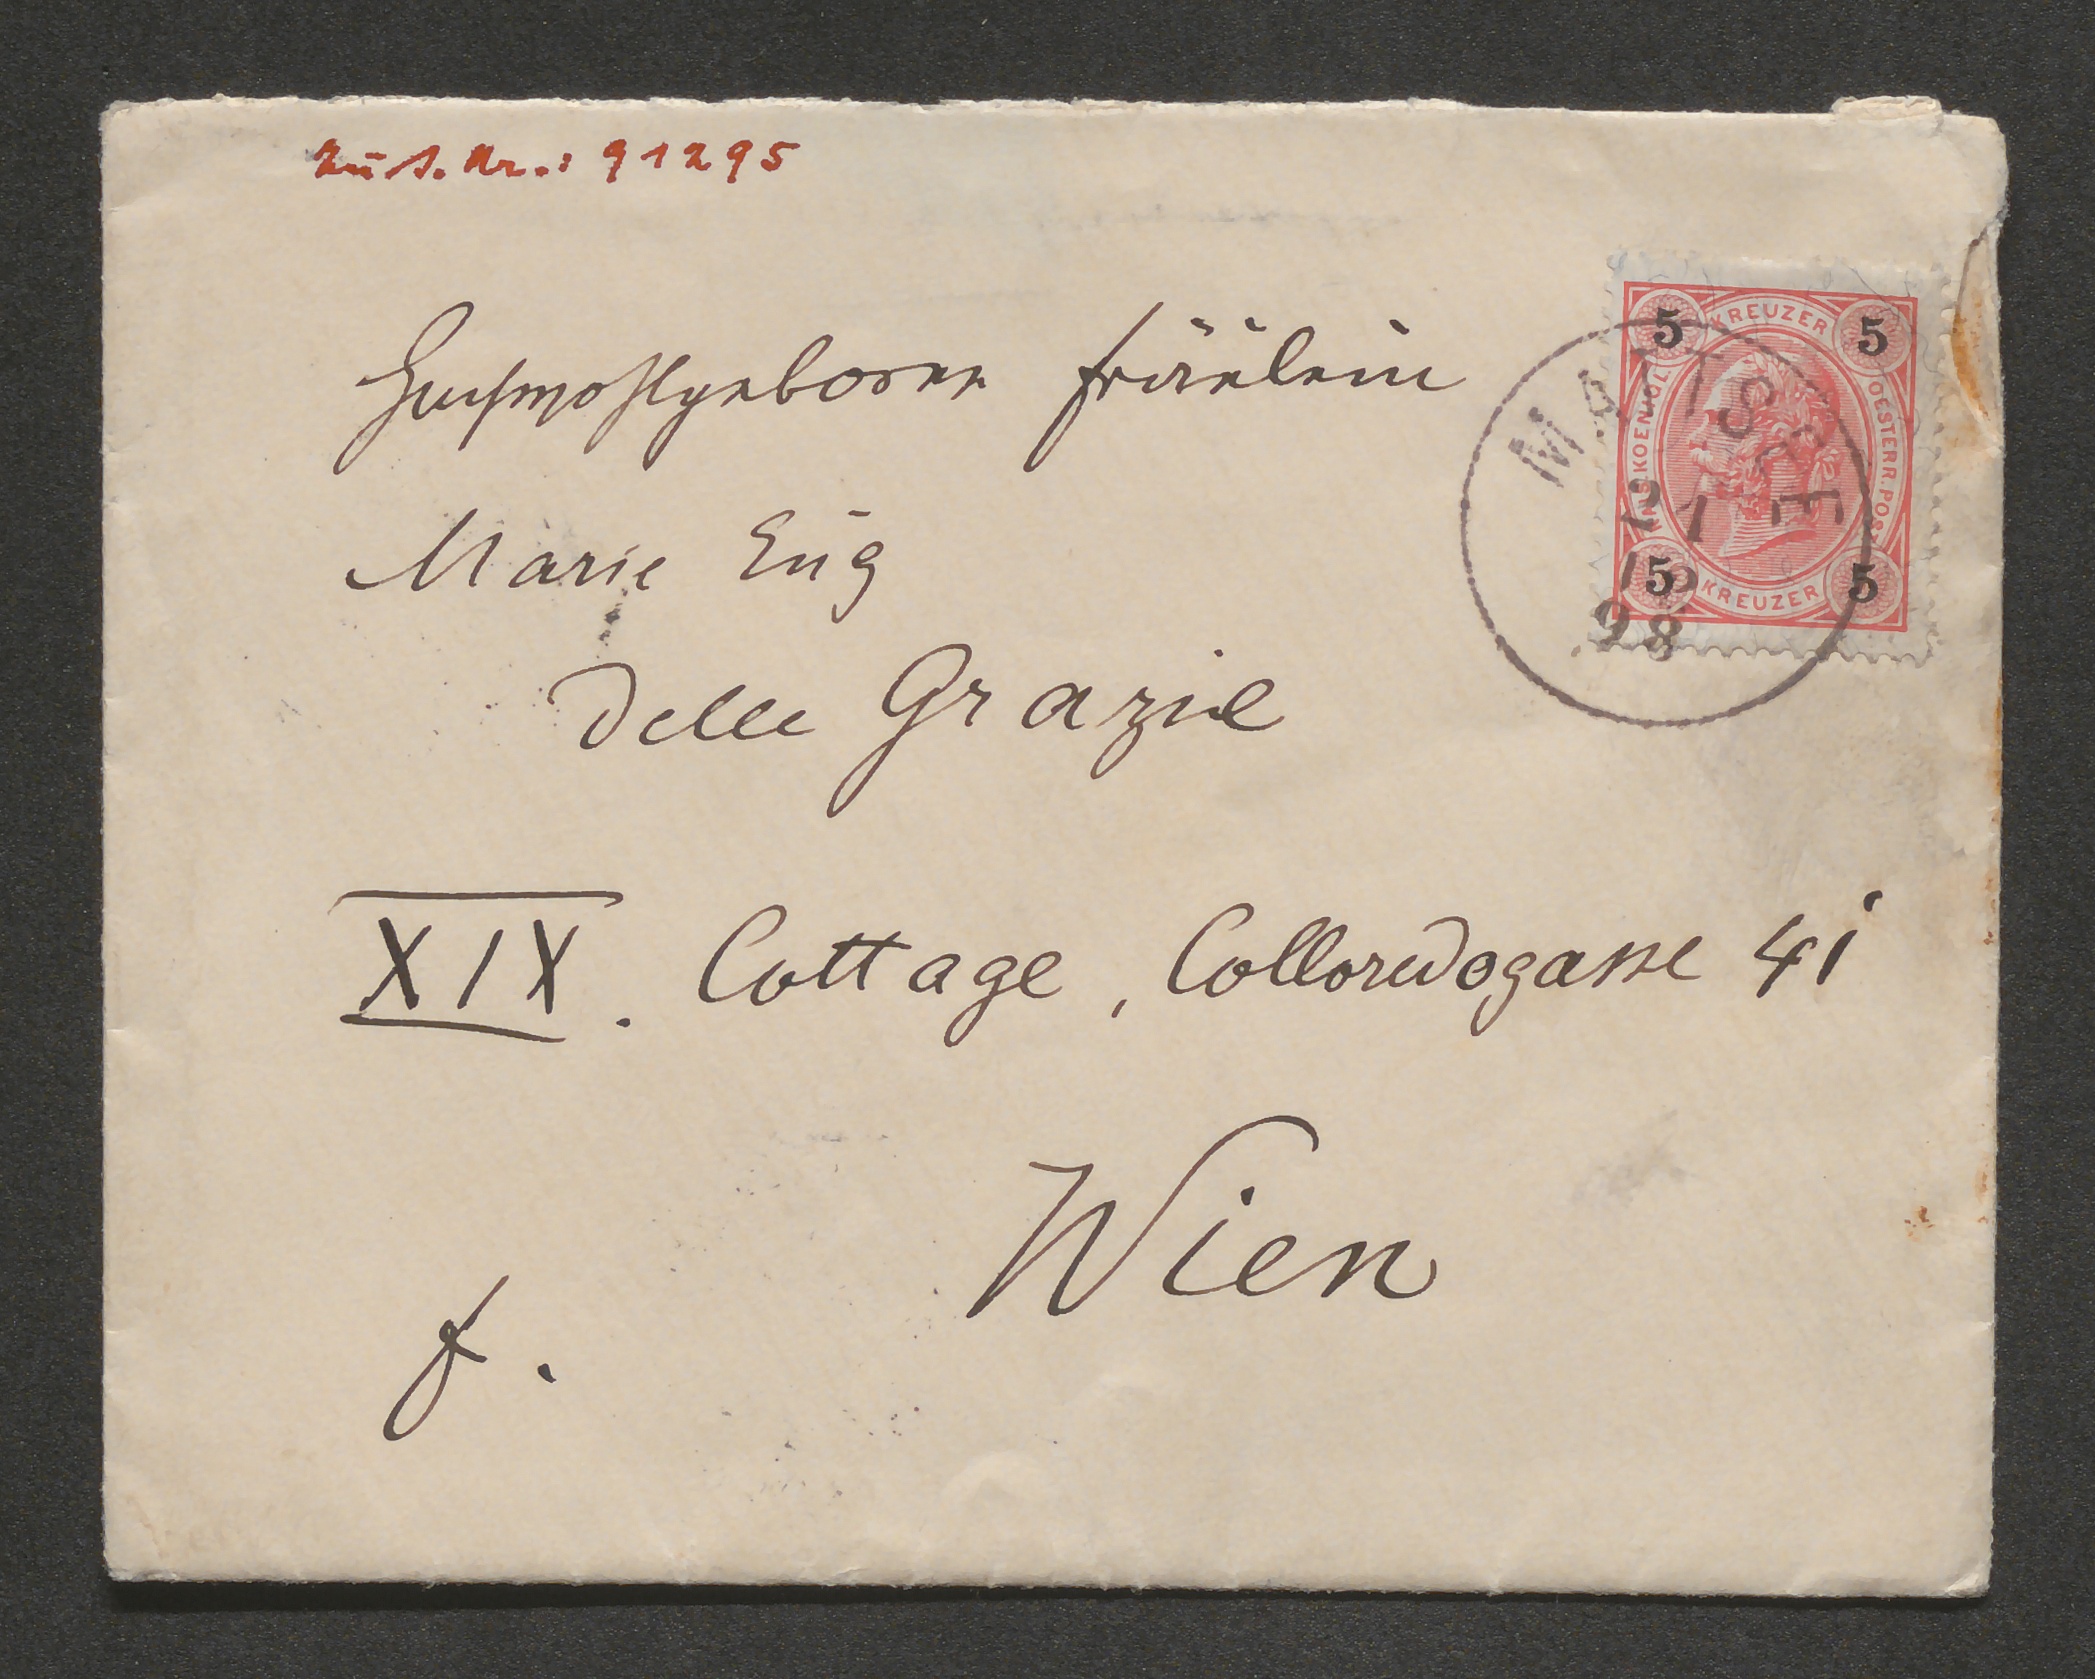 Zuw. Nr.: 91295
Hochwohlgeboren Fräulein
Marie Eug
delle Grazie
XIX. Cottage, Colloredogasse 41
Wien
f.
5 KREUZER 5
KAIS. KOENIGL. OESTERR. POST
5 KREUZER 5
MATTSEE
21
98